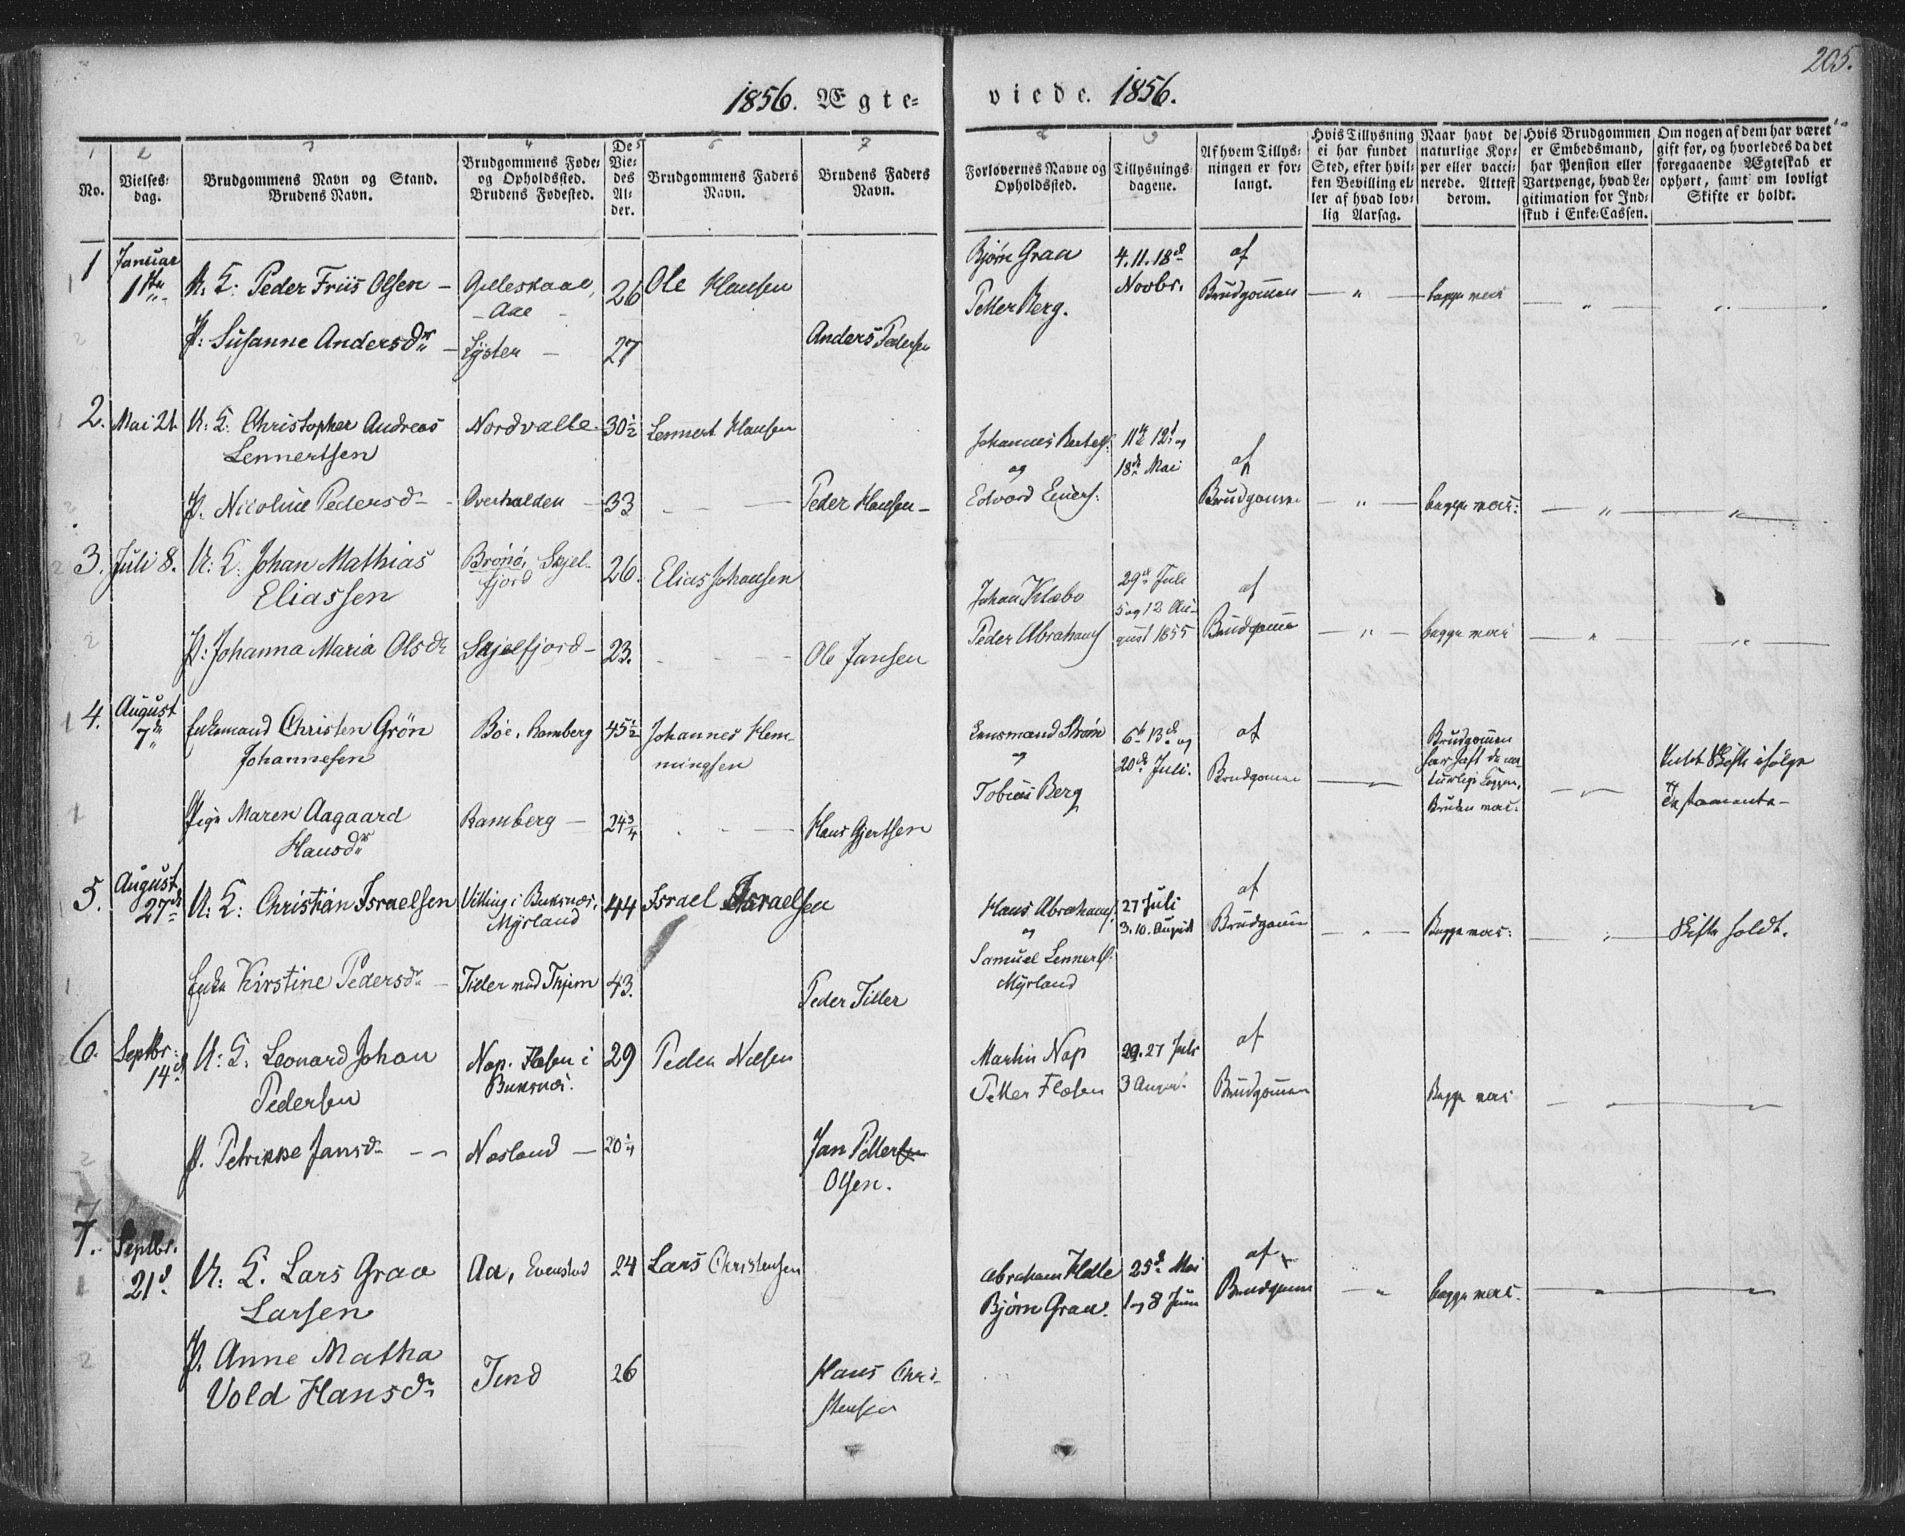 205.
1856. Ægte-
viede. 1856.
No.
Vielses-
dag.
Brudgommens Navn og Stand.
Brudens Navn.
Brudgommens Føde-
og Opholdssted.
Brudens Fødested.
De
Vie-
des
Al-
der.
Brudgommens Faders
Navn.
Brudens Faders
Navn.
Forlovernes Navne og
Opholdssted.
Tillysnings-
dagene.
Af hvem Tillys-
ningen er for-
langt.
Hvis Tillysning
ei har fundet
Sted, efter hvil-
ken Bevilling el-
ler af hvad lov-
lig Aarsag.
Naar havt de
naturlige Kop-
per eller vacci-
nerede. Attest
derom.
Hvis Brudgommen
er Embedsmand,
har Pension eller
Vartpenge, hvad Le-
gitimation for Ind-
skud i Enke-Cassen.
Om nogen af dem har været
gift før, og hvorledes da det
foregaaende Ægteskab er
ophørt, samt om lovligt
Skifte er holdt.
1
Januar
1ste
U. K: Peder Friis Olsen
Gilleskaal,
Aae
26
Ole Hansen
Bjørn Graa
4. 11. 18de
Novbr.
af
Brudgommen
begge vac:
Petter Berg.
P: Susanne Andersdr
Lyster
27
Anders Pedersen
2.
Mai 21.
U. K. Christopher Andreas
Lennertsen
Nordvalle
30½
Lennert Hansen
Johannes Bertels:
og
Edvard Eners:
11te 12te og
18de Mai
af
Brudgommen
begge vac:
P. Nicoline Pedersd
Overhalden
33
Peder Hansen
3.
Juli 8.
U: K. Johan Mathias
Eliassen
Brønø, Skjel-
fjord
26.
Elias Johansen
Johan Klæbo
Peder Abrahams
29de Juli
5 og 12 Au-
gust 1855
af
Brudgommen
begge vac:
P: Johanna Maria Olsdr
Skjelfjord
23.
Ole Jansen
4.
August
7de
Enkemand Christen Grön
Johannesen
Böe, Ramberg
45½
Johannes Hem-
mingsen
Lensmand Strøm
og
Tobias Berg
6te 13de og
20de Juli.
af
Brudgommen
Brudgommen
har haft de na-
turlige Kopper,
Bruden vac:
Intet Skifte ifölge
Testamente
Pige Maren Aagaard
Hansdr
Ramberg
24¾
Hans Gjertsen
5.
August
27de
U: K: Christian Israelsen
Vitting i Buksnæs,
Myrland
44
Israel Israelsen
Hans Abrahams:
og
Samuel Lennerts:
Myrland
27 Juli
3. 10. August
af
Brudgommen
Begge vac:
Skifte holdt.
Enke Kirstine Pedersdr
Tiller ved Thjem
43.
Peder Tiller
6.
Septbr:
14de
U: K. Leonard Johan
Pedersen
Nap. Flæsen i
Buksnæs.
29
Peder Nilsen
Martin Nap
Petter Flæsen
20. 27 Juli
3 August
af
Brudgommen
Begge vac:
P. Petrikke Jansdr
Næsland
20¼
Jan Petter
Olsen.
7.
Septbr.
21de
U: K. Lars Graa
Larsen
Aa, Evenstad
24
Lars Christensen
Abraham Helle
Bjørn Graa.
25de Mai
1 og 8 Juni
af
Brudgommen
begge vac:
P. Anne Matha
Vold Hansdr
Tind
26
Hans Chri-
stensen